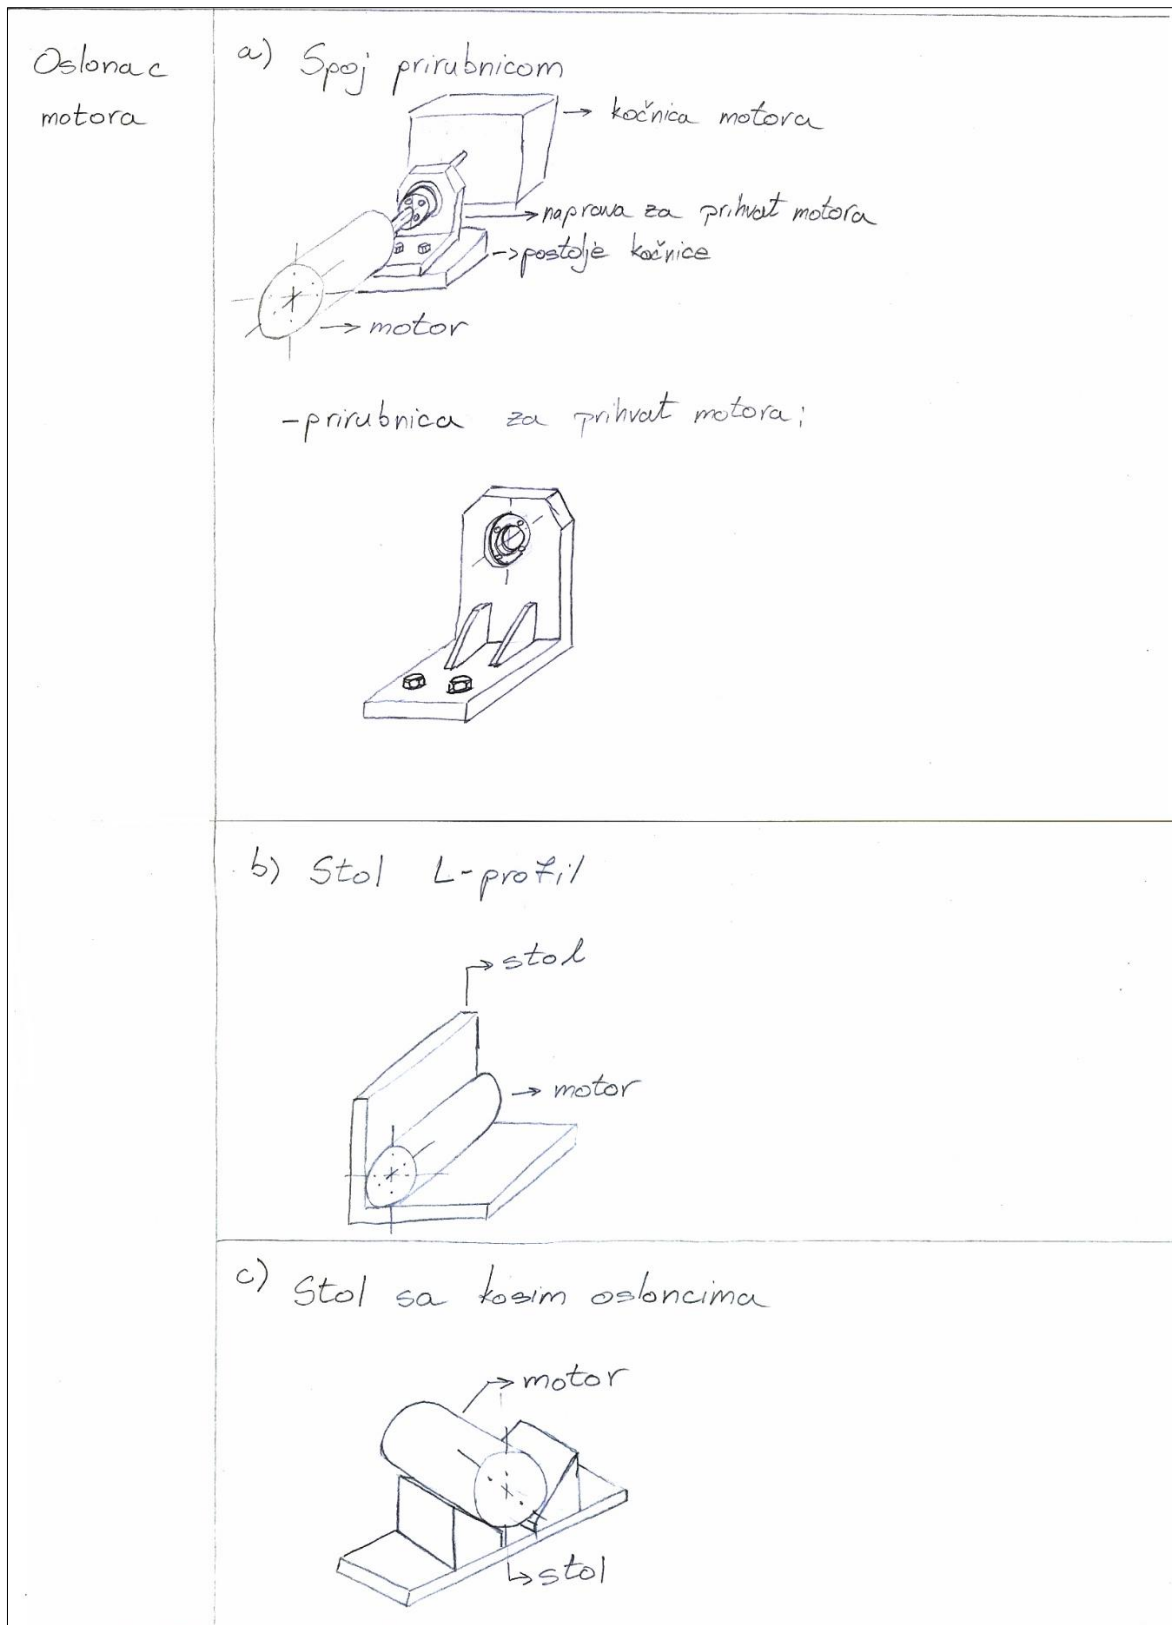 Oslonac
motora
a) Spoj prirubnicom
→ kočnica motora
→ naprava za prihvat motora
→ postolje kočnice
→ motor
- prirubnica za prihvat motora;
b) Stol L-profil
→ stol
→ motor
c) Stol sa kosim osloncima
→ motor
→ stol